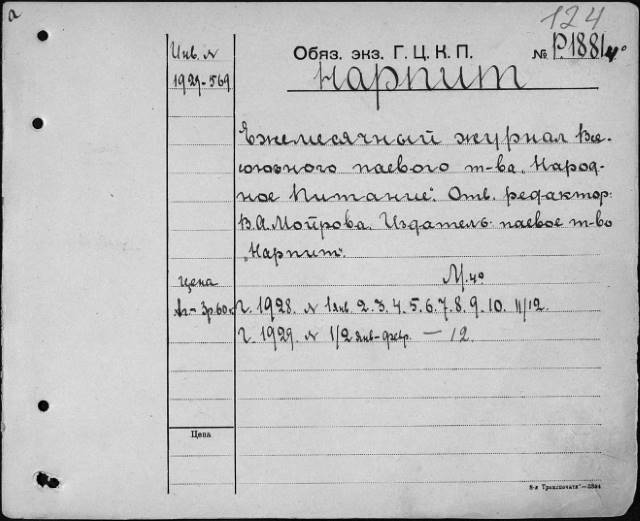 124
Инв. №
Обяз. экз. Г. Ц. К. П.
№ Р.1881 4°
1929-569
Нарпит
Ежемесячный журнал Все-
союзного паевого т-ва „Народ-
ное Питание". Отв. редактор:
В.А. Мойрова. Издатель: паевое т-во
„Нарпит".
цена
М. 4°
3р.60к
г. 1928. № 1янв. 2. 3. 4. 5. 6. 7. 8. 9. 10. 11/12.
г. 1929. № 1/2 янв-фвр. — 12.
Цена